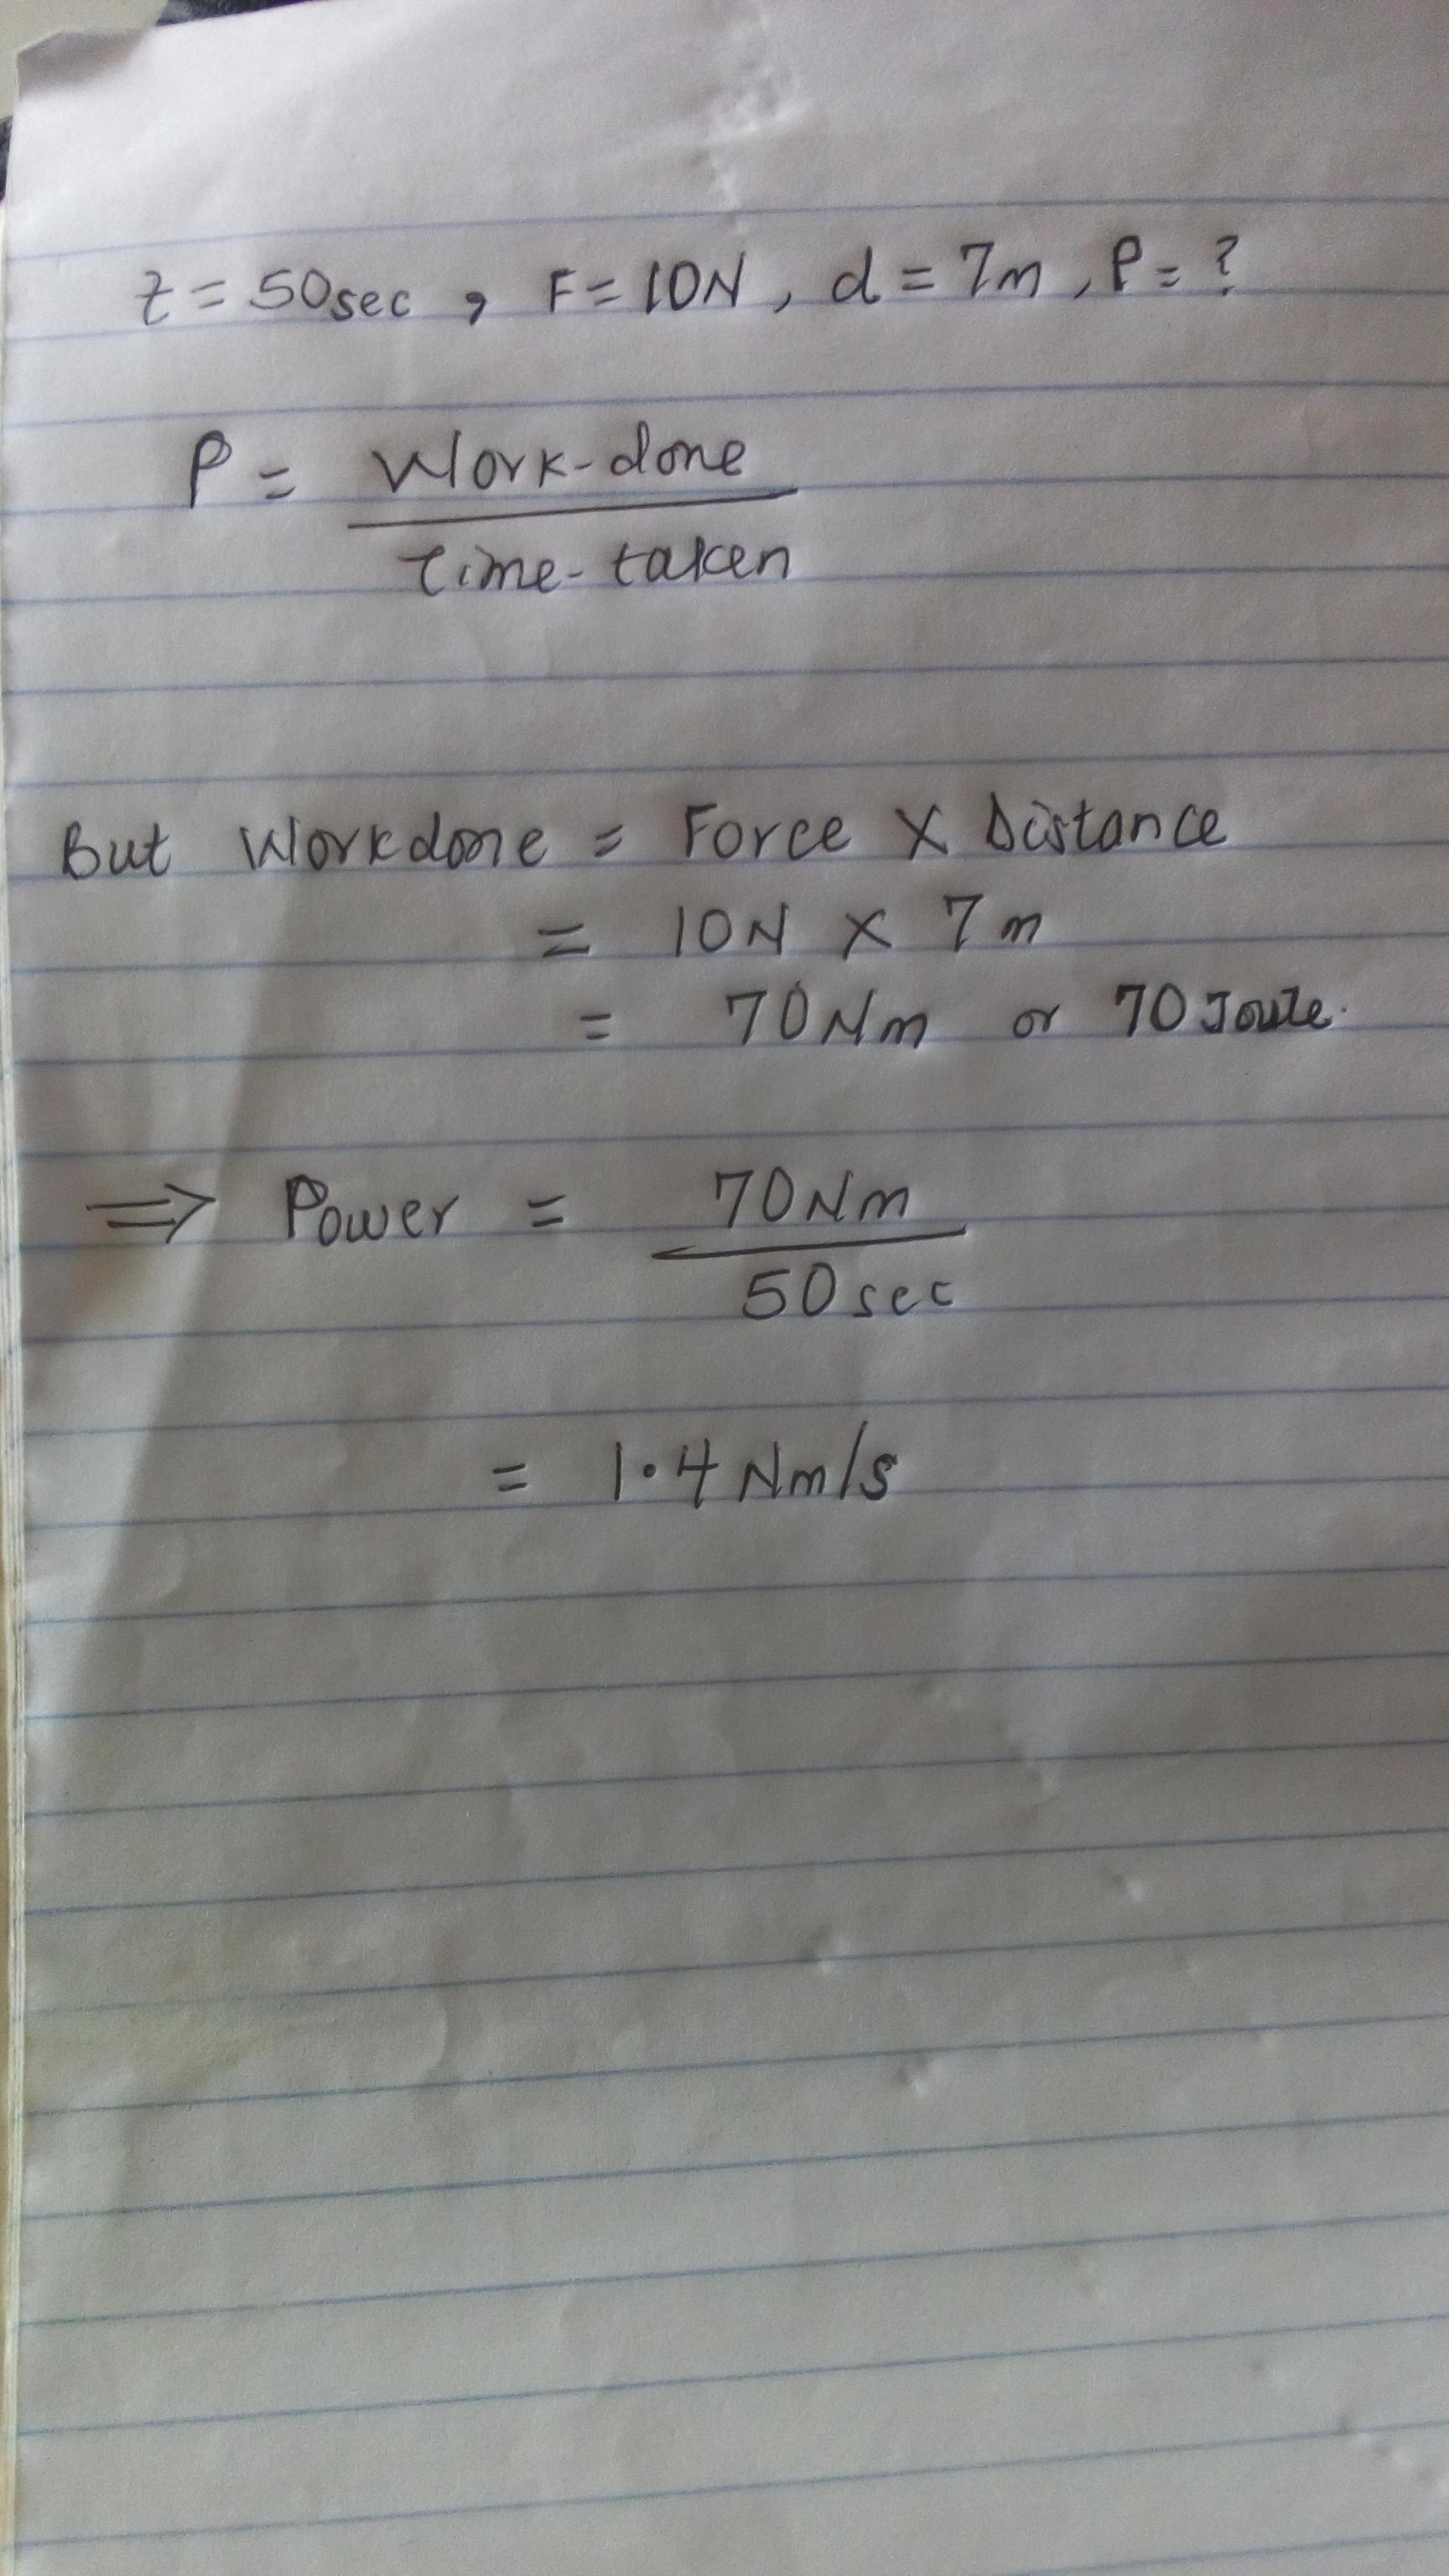 t = 50sec , F = 10N , d = 7m , P = ?
P = Work-done
time-taken
But Workdone = Force X Distance
= 10N X 7m
= 70Nm or 70 Joule.
⇒ Power = 70Nm
50sec
= 1.4 Nm/s